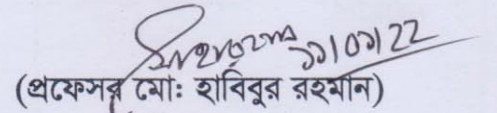 ১১/০১/22
(প্রফেসর মোঃ হাবিবুর রহমান)